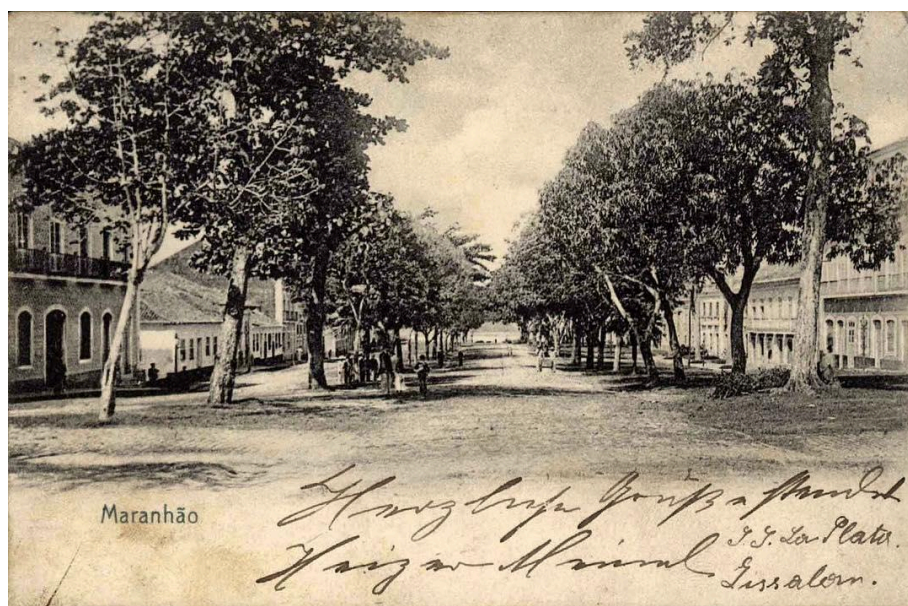 Maranhão
Herzliche Grüße sendet
Heizer Meinel
S.S. La Plata.